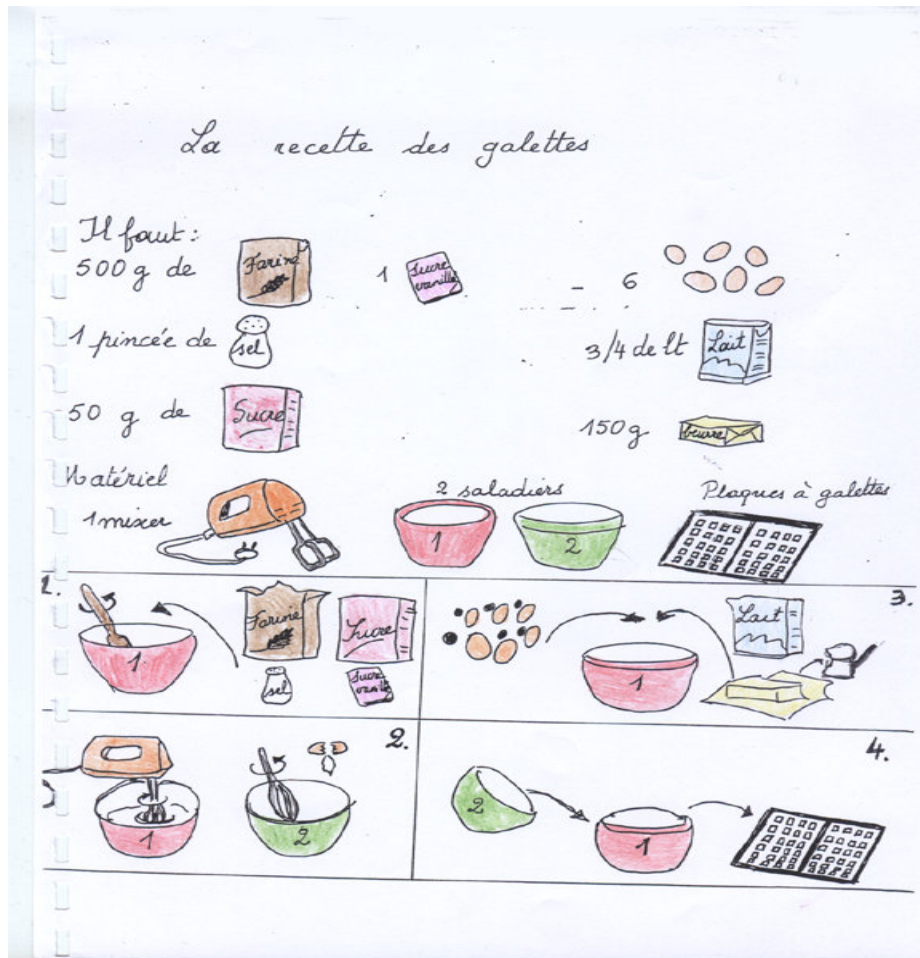 La recette des galettes
Il faut :
500 g de Farine 1 Sucre vanillé - 6
1 pincée de sel 3/4 de lt Lait
50 g de Sucre 150 g beurre
Matériel 2 saladiers Plaques à galettes
1 mixer 1 2
1. Farine Sucre Lait 3.
1 sel Sucre vanillé 1
2. 4.
1 2 2 1